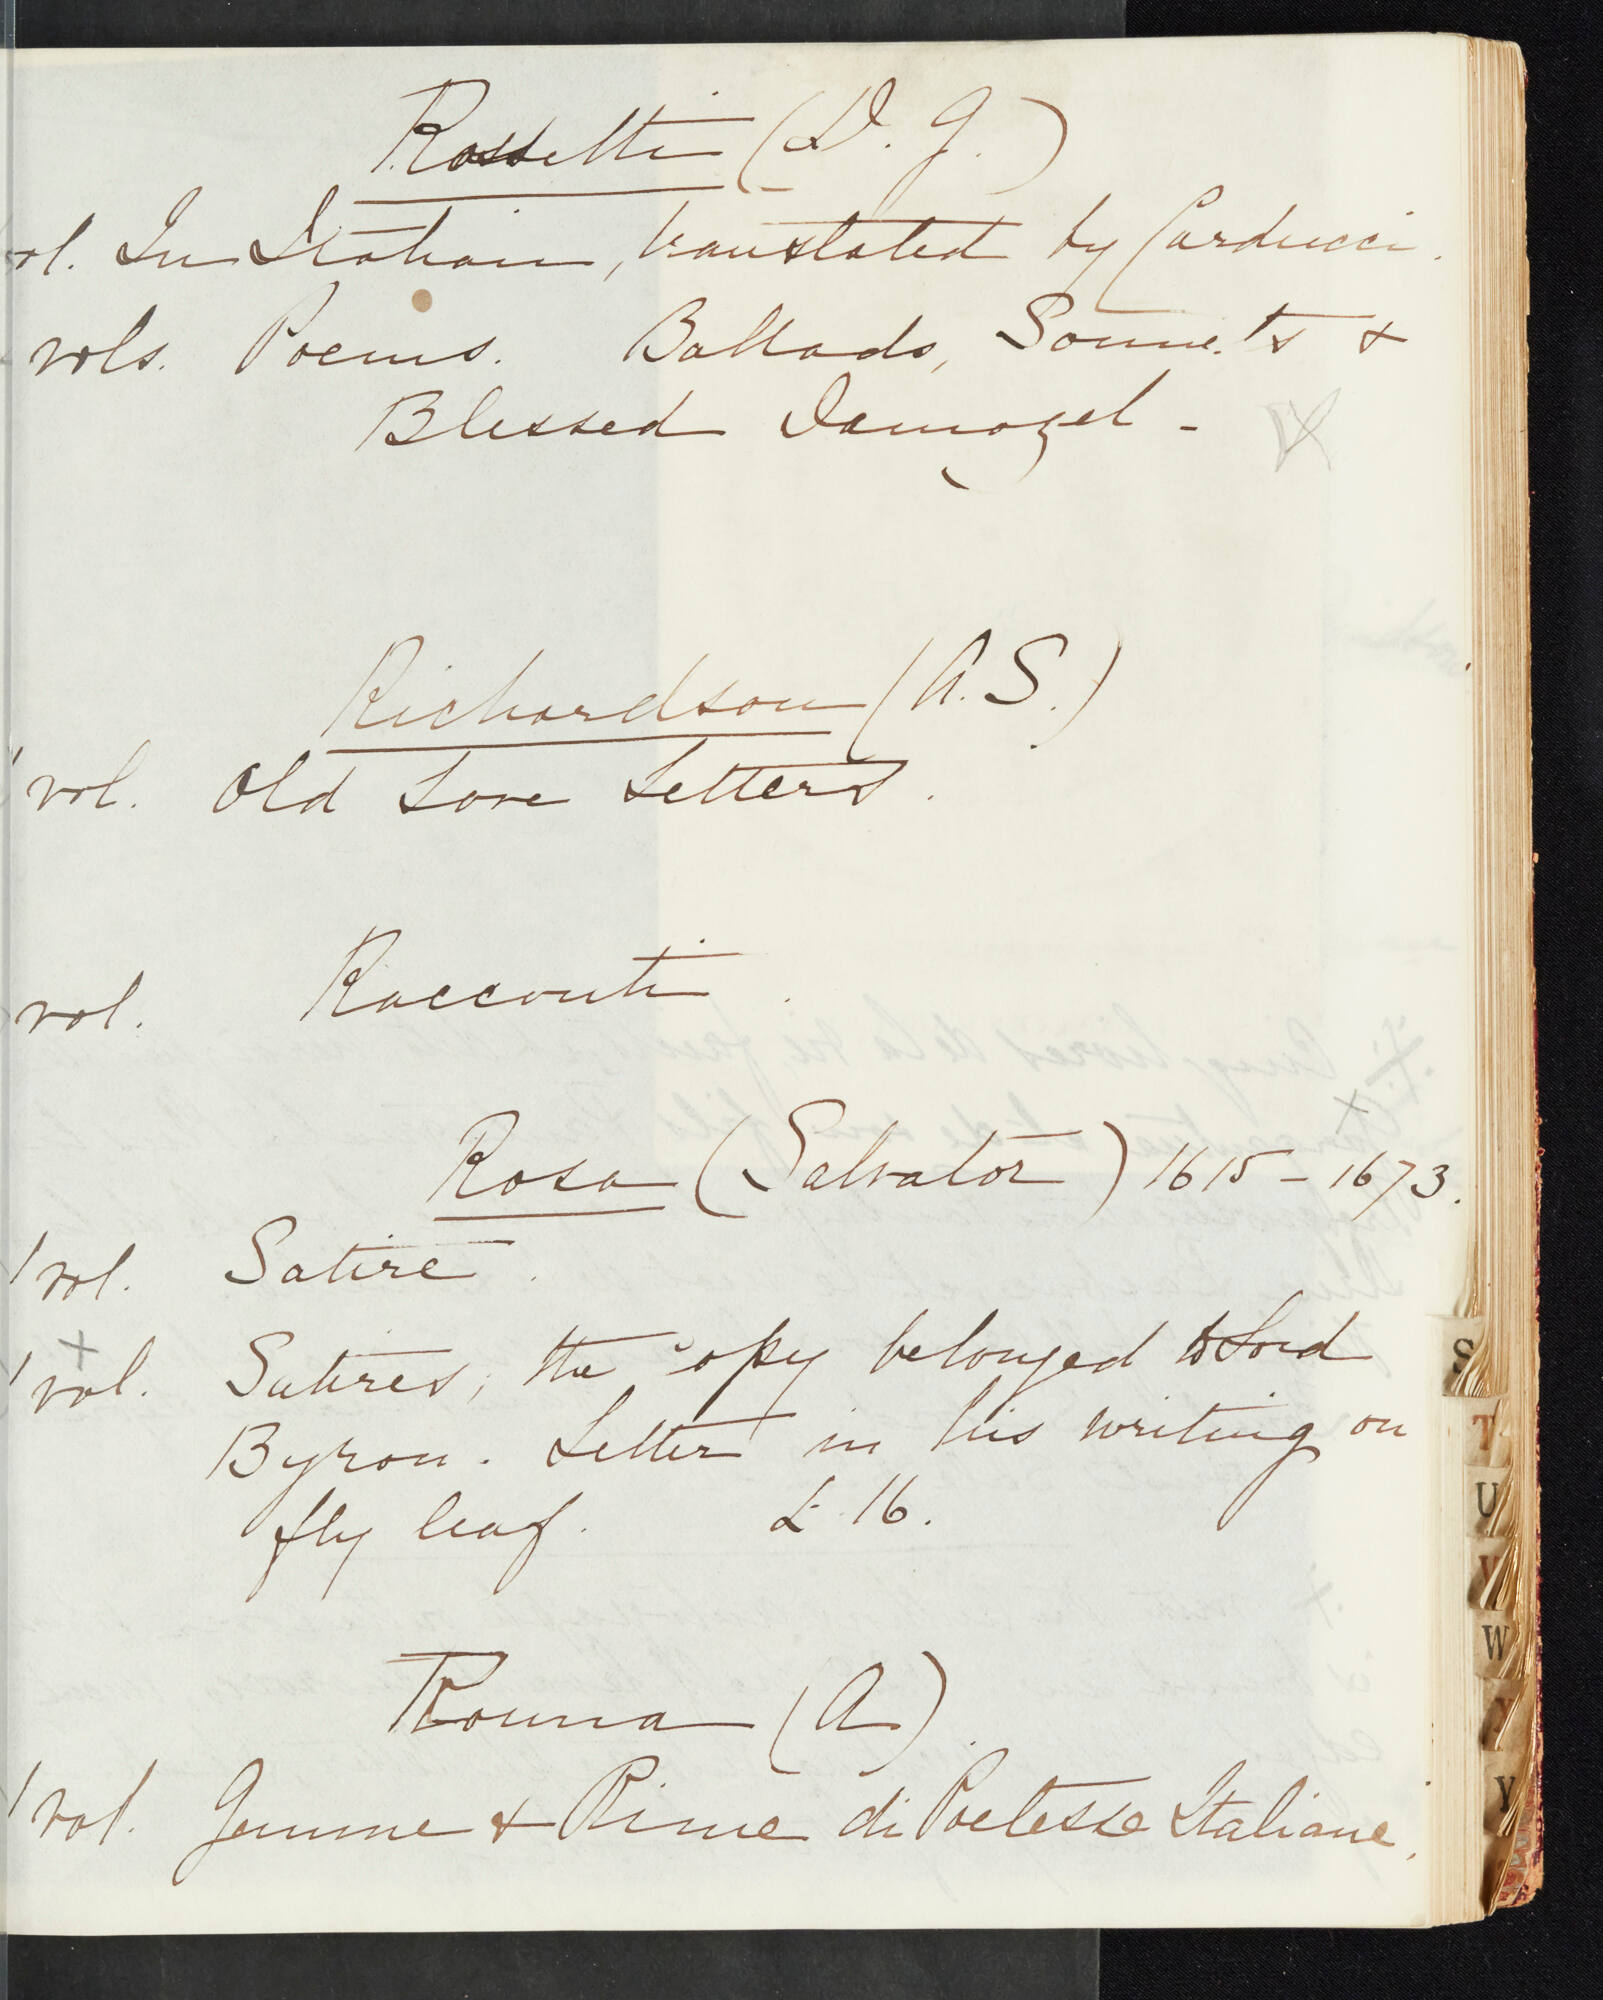 Rossetti (D. G.)
ol. In Italian, translated by Carducci.
vols. Poems. Ballads, Sonnets +
Blessed Damozel -
Richardson (A. S.)
1 vol. Old Love Letters.
vol. Racconti.
Rosa (Salvator) 1615 - 1673.
1 vol. Satire.
1 vol. Satires, the copy belonged to Lord
Byron. Letter in his writing on
fly leaf. £ 16.
Ronna (A)
1 vol. Gemme + Rime di Poetesse Italiane.
S
T
U
V
W
X
Y